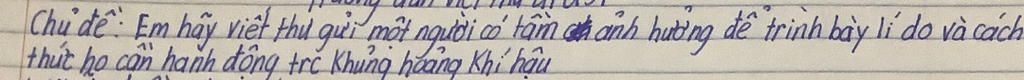 Chủ đề: Em hãy viết thư gửi một người có tầm ảnh hưởng để trình bày lí do và cách
thức họ cần hành động trc khủng hoảng Khí hậu